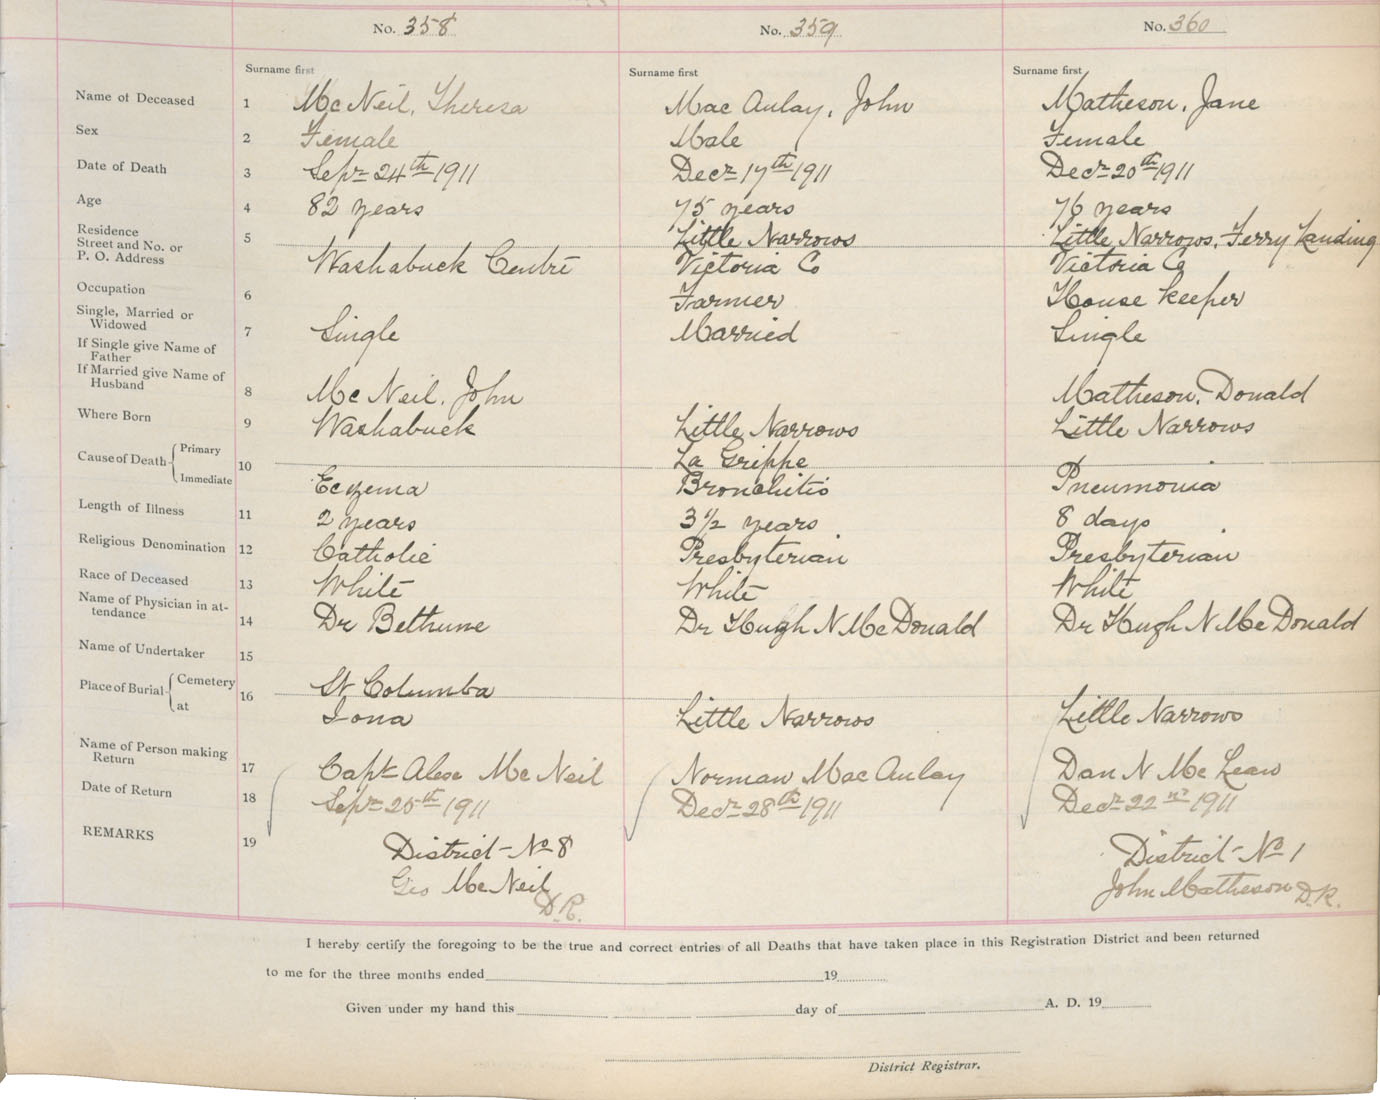 No. 358 No. 359 No. 360
Surname first Surname first Surname first
Name of Deceased 1 McNeil, Theresa MacAulay, John Matheson, Jane
Sex 2 Female Male Female
Date of Death 3 Sepr 24th 1911 Decr 17th 1911 Decr 20th 1911
Age 4 82 years 75 years 76 years
Residence
Street and No. or 5 Little Narrows Little Narrows, Ferry Landing
P. O. Address Washabuck Centre Victoria Co Victoria Co
Occupation 6 Farmer House keeper
Single, Married or
Widowed 7 Single Married Single
If Single give Name of
Father
If Married give Name of
Husband 8 McNeil, John Matheson, Donald
Where Born 9 Washabuck Little Narrows Little Narrows
Cause of Death Primary 10 La Grippe
Immediate Eczema Bronchitis Pneumonia
Length of Illness 11 2 years 3 1/2 years 8 days
Religious Denomination 12 Catholic Presbyterian Presbyterian
Race of Deceased 13 White White White
Name of Physician in at-
tendance 14 Dr Bethune Dr Hugh N McDonald Dr Hugh N McDonald
Name of Undertaker 15
Place of Burial Cemetery 16 St Columba
at Iona Little Narrows Little Narrows
Name of Person making
Return 17 Capt Alex McNeil Norman MacAulay Dan N McLean
Date of Return 18 Sepr 25th 1911 Decr 28th 1911 Decr 22nd 1911
REMARKS 19 District No 8 District No 1
Geo McNeil John Matheson D.R.
D.R.
I hereby certify the foregoing to be the true and correct entries of all Deaths that have taken place in this Registration District and been returned
to me for the three months ended 19
Given under my hand this day of A. D. 19
District Registrar.